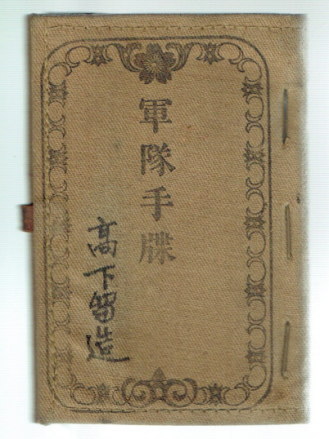 軍隊手牒
高下智造